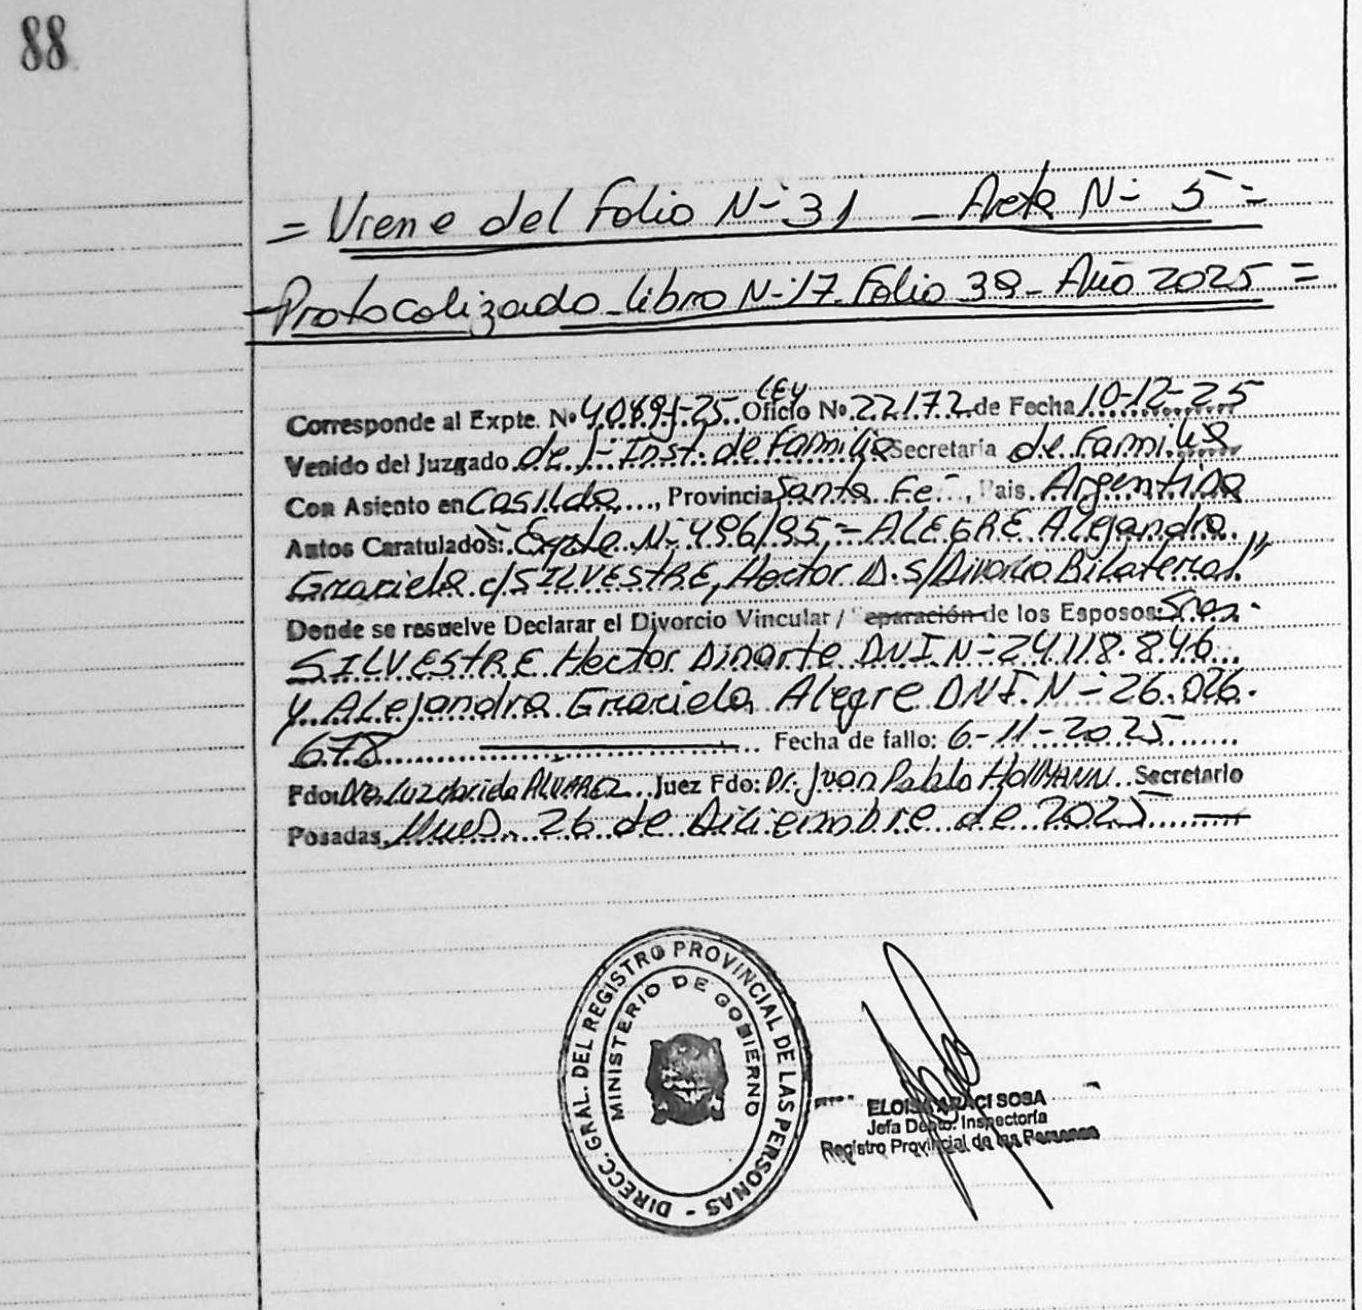 88
= Viene del Folio N- 31 - Acta N- 5 =
- Protocolizado libro N- 17 Folio 39 - Año 2025 =
LEY
Corresponde al Expte. Nº 4089-J-25 Oficio Nº 22172 de Fecha 10-12-25
Venido del Juzgado de 1- Inst. de Familia Secretaría de Familia
Con Asiento en Casilda, Provincia Santa Fe, Pais Argentina
Autos Caratulados: Expte N- 496/95 - ALEGRE Alejandra
Graciela c/ SILVESTRE, Hector D. s/ Divorcio Bilateral"
Donde se resuelve Declarar el Divorcio Vincular / eparación de los Esposos: Sres.
SILVESTRE Hector Dinarte DNI N- 24.118.846
y Alejandra Graciela Alegre DNI N- 26.026.
678 Fecha de fallo: 6-11-2025
Fdo: Dra. Luz Mariela ALVAREZ Juez Fdo: Dr. Juan Pablo HOLLMANN Secretario
Posadas, Mnes. 26 de Diciembre de 2025
DIRECC. GRAL. DEL REGISTRO PROVINCIAL DE LAS PERSONAS -
MINISTERIO DE GOBIERNO
ELOISA ARACI SOSA
Jefa Depto. Inspectoría
Registro Provincial de las Personas